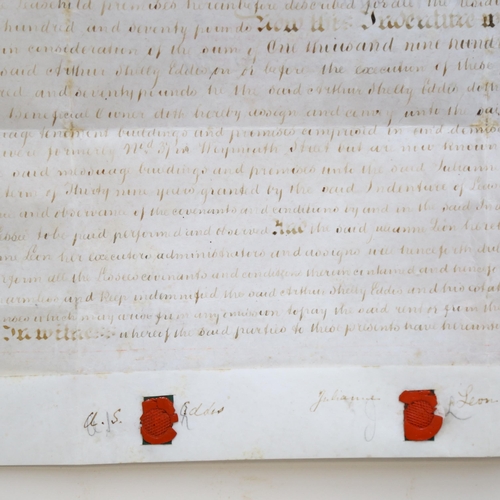 leasehold premises hereinbefore described for the
hundred and seventy pounds Now this Indenture
in consideration of the sum of One thousand nine hund
said Arthur Shelly Eddis on or before the execution of these
and seventy pounds he the said Arthur Shelly Eddis doth
beneficial Owner doth hereby assign and convey unto the
tenement buildings and premises comprised in and demis
were formerly No. 37 in Weymouth Street but are now known
said messuage buildings and premises unto the said Julianne
term of Thirty nine years granted by the said Indenture of
and observance of the covenants and conditions by and in the said
to be paid performed and observed And the said Julianne Leon hereb
Leon her executors administrators and assigns will henceforth
perform all the Lessees covenants and conditions therein contained and
and keep indemnified the said Arthur Shelly Eddis and his estate
which may arise from any omission to pay the said rent or
In witness whereof the said parties to these presents have hereunto
A. S. Eddis Julianne Leon